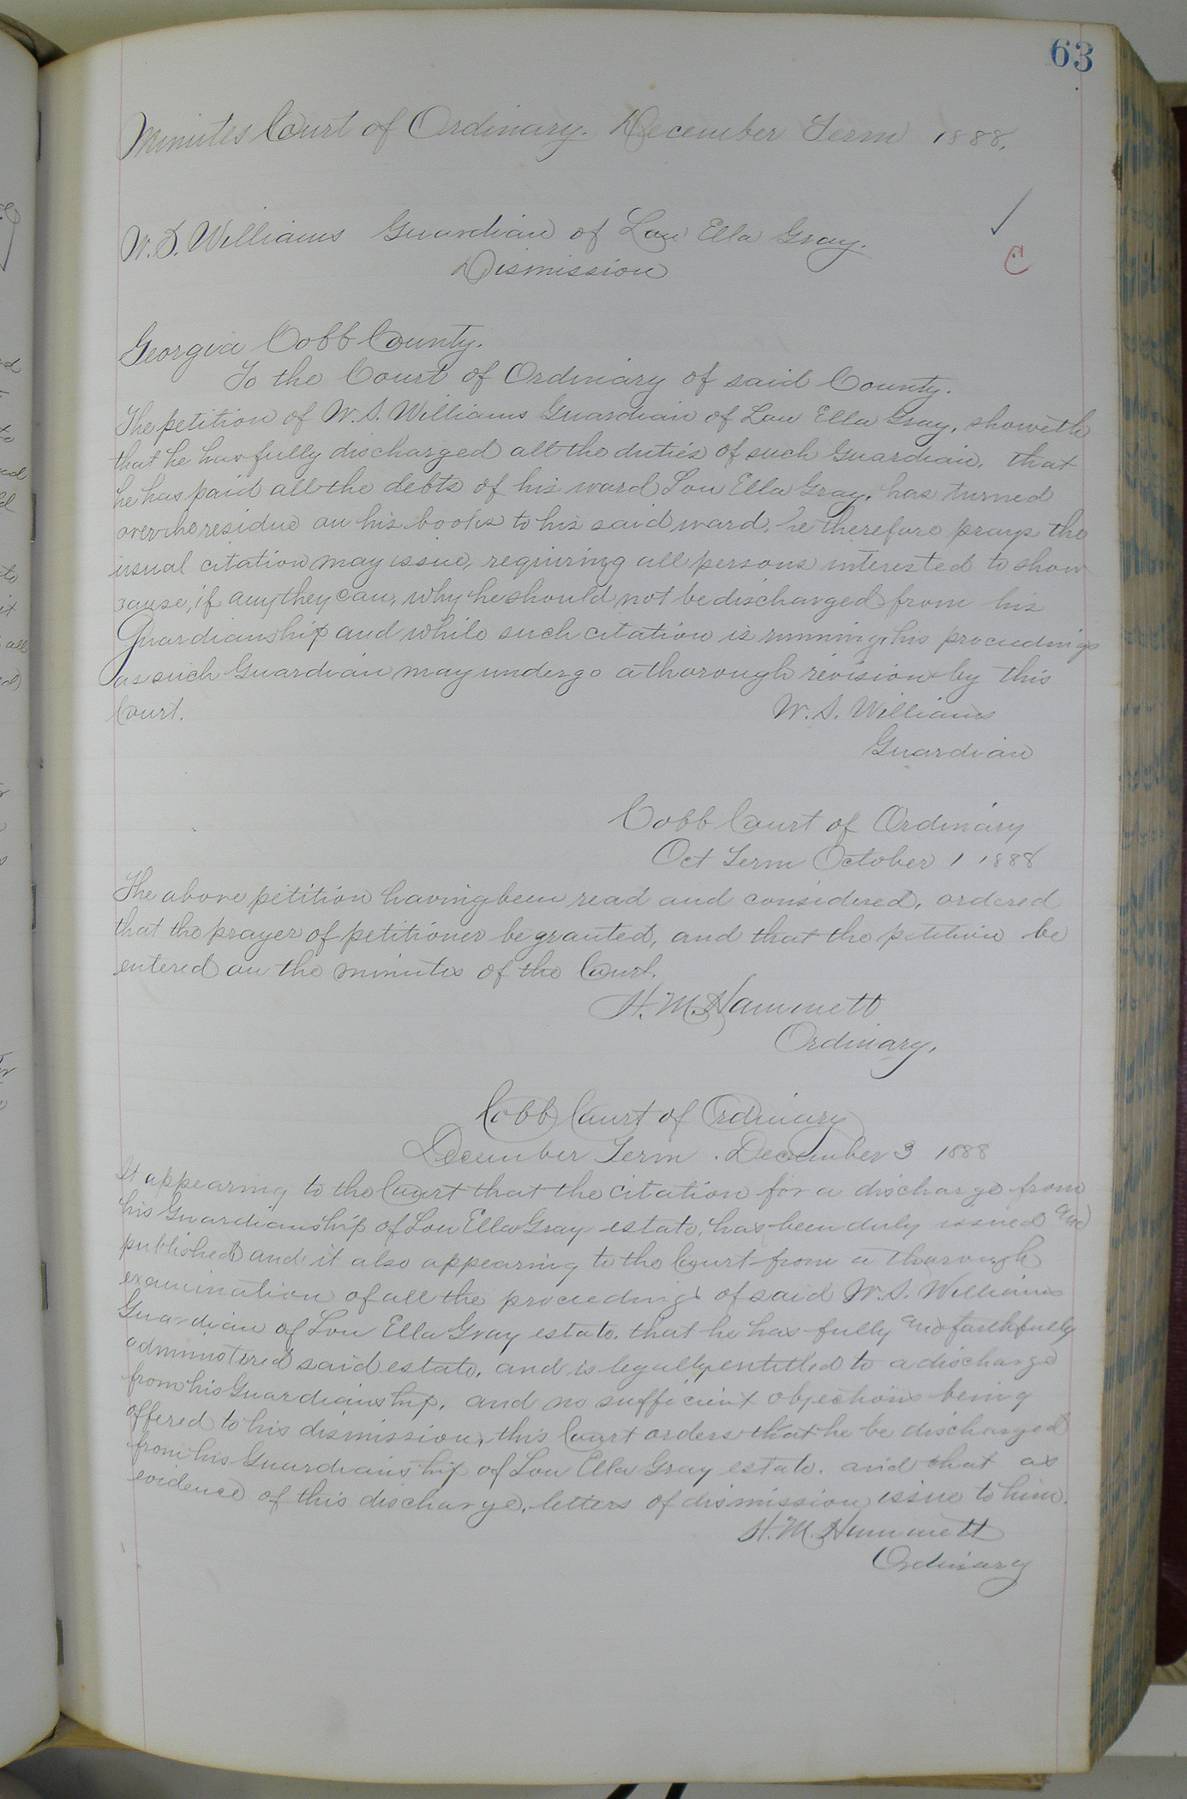 63
Minutes Court of Ordinary. December Term 1888.
W. S. Williams Guardian of Lou Ella Gray.
Dismission
C
Georgia Cobb County.
To the Court of Ordinary of said County.
The petition of W. S. Williams Guardian of Lou Ella Gray, showeth
that he has fully discharged all the duties of such Guardian, that
he has paid all the debts of his ward Lou Ella Gray, has turned
over the residue on his books to his said ward, he therefore prays the
usual citation may issue, requiring all persons interested to show
cause, if any they can, why he should not be discharged from his
Guardianship and while such citation is running, his proceedings
as such Guardian may undergo a thorough revision by this
Court.
W. S. Williams
Guardian
Cobb Court of Ordinary
Oct Term October 1 1888
The above petition having been read and considered, ordered
that the prayer of petitioner be granted, and that the petition be
entered on the minutes of the Court.
H. M. Hammett
Ordinary.
Cobb Court of Ordinary
December Term. December 3 1888
It appearing to the Court that the citation for a discharge from
his Guardianship of Lou Ella Gray estate, has been duly issued and
published and it also appearing to the Court from a thorough
examination of all the proceedings of said W. S. Williams
Guardian of Lou Ella Gray estate, that he has fully and faithfully
administered said estate, and is legally entitled to a discharge
from his Guardianship, and no sufficient objections being
offered to his dismission, this Court orders that he be discharged
from his Guardianship of Lou Ella Gray estate. and that as
evidence of this discharge, letters of dismission issue to him.
H. M. Hammett
Ordinary